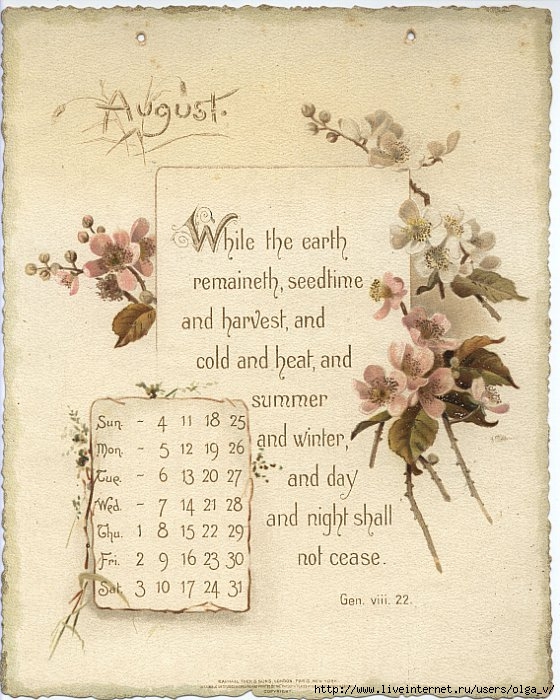 August.
While the earth
remaineth, seedtime
and harvest, and
cold and heat, and
summer
and winter,
and day
and night shall
not cease.
Gen. viii. 22.
Sun. - 4 11 18 25
Mon. - 5 12 19 26
Tue. - 6 13 20 27
Wed. - 7 14 21 28
Thu. 1 8 15 22 29
Fri. 2 9 16 23 30
Sat. 3 10 17 24 31
RAPHAEL TUCK & SONS, LONDON, PARIS, NEW YORK.
COPYRIGHT.
http://www.liveinternet.ru/users/olga_v/